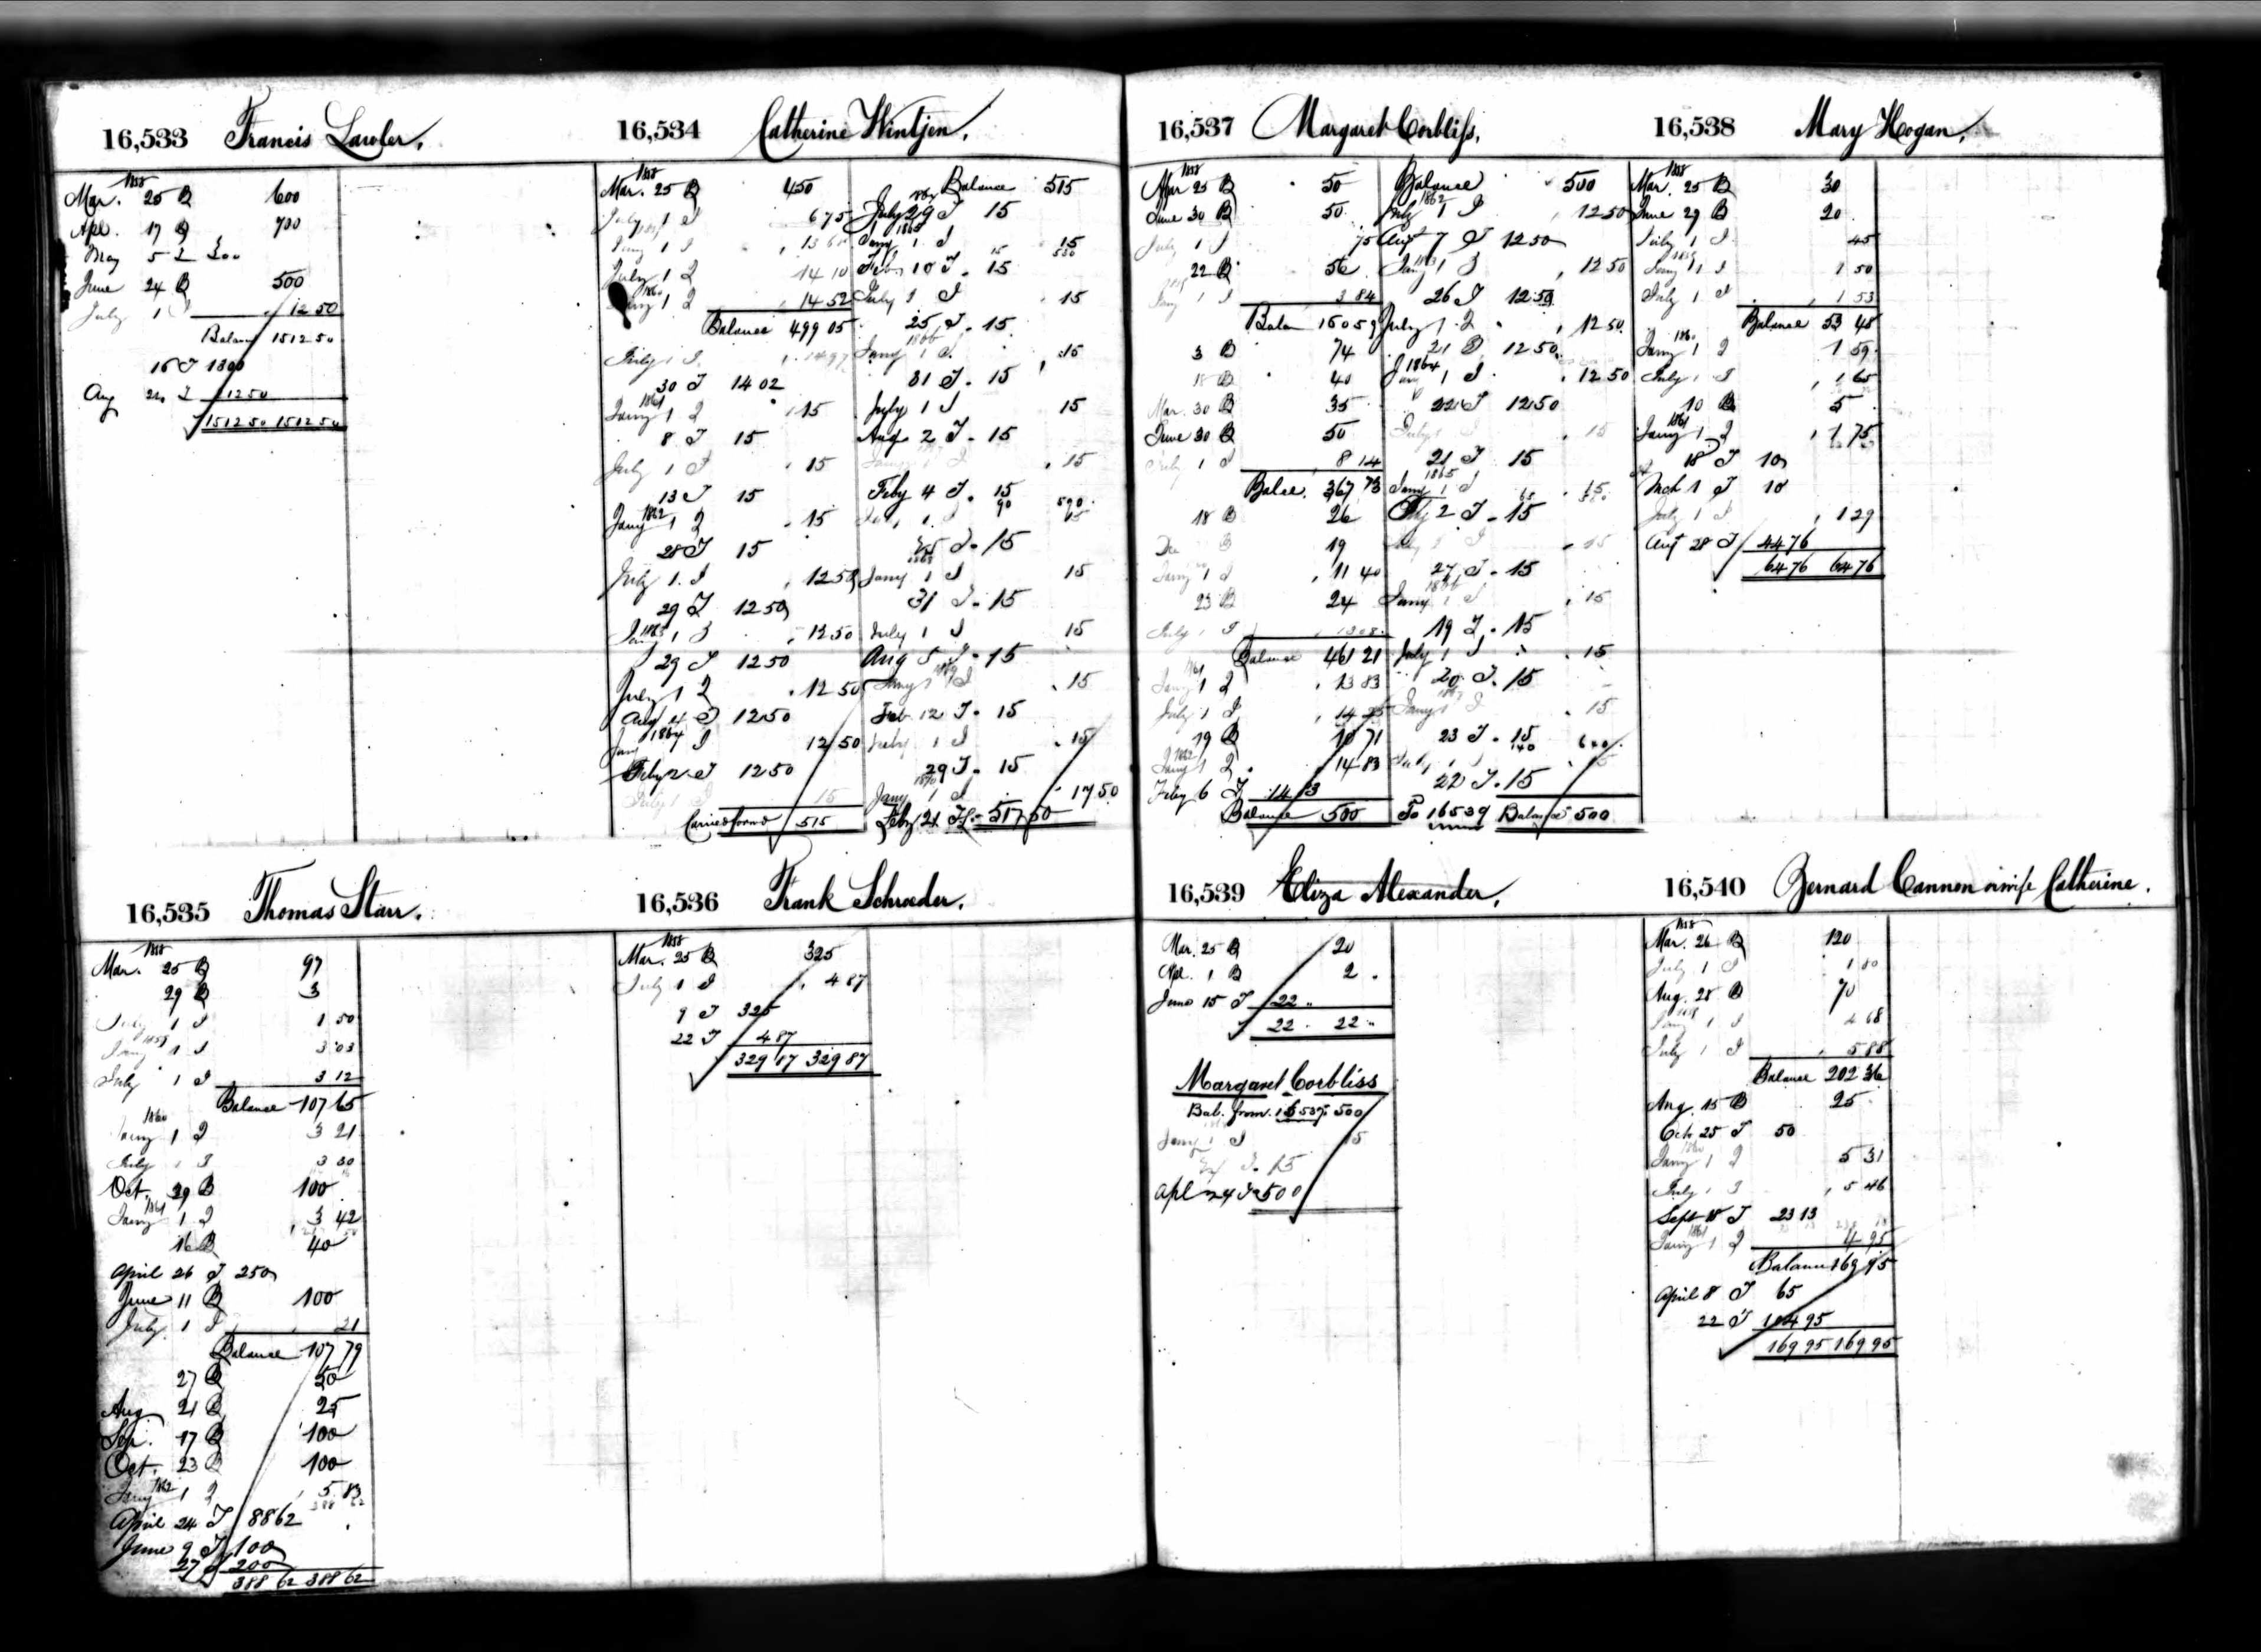 16,533 Francis Lawler.
1858
Mar. 25 B 600
Apl. 17 B 700
May 5 300
June 24 B 500
July 1 I 12 50
Balance 1512 50
16 T 1300
Aug 24 T 212 50
1512 50 1512 50
16,534 Catherine Wintjen.
1858
Mar. 25 B 450
July 1 I 6 75
Jany 1 I
July 1 I 14 10
1860
Jany 1 I 14 52
Balance 499 05
July 1 I 14 97
30 T 14 02
1861
Jany 1 I 15
8 T 15
July 1 I 15
13 T 15
1862
Jany 1 I 15
28 T 15
July 1 I 12 50
29 T 12 50
1863
Jany 1 I 12 50
29 T 12 50
July 1 I 12 50
Aug 4 T 12 50
1864
Jany 1 I 12 50
Feby 2 T 12 50
July 1 I 15
Carried forwd 515
Balance 515
1864
July 29 T 15
1865
Jany 1 I 15
Feb 10 T 15
July 1 I 15
25 T 15
1866
Jany 1 I 15
31 T 15
July 1 I 15
Aug 2 T 15
Jany 1 I 15
Feby 4 T 15
July 1 I 15
25 T 15
1868
Jany 1 I 15
31 T 15
July 1 I 15
Aug 5 T 15
1869
Jany 1 I 15
Feb 12 T 15
July 1 I 15
29 T 15
1870
Jany 1 I 17 50
Feby 21 T 517 50
16,535 Thomas Starr.
1858
Mar. 25 B 97
29 B 3
July 1 I 1 50
1859
Jany 1 I 3 03
July 1 I 3 12
Balance 107 65
1860
Jany 1 I 3 21
July 1 I 3 30
Oct. 29 B 100
1861
Jany 1 I 3 42
16 B 40
April 26 T 250
June 11 B 100
July 1 I 21
Balance 107 79
27 B 50
Aug 21 B 25
Sep. 17 B 100
Oct. 23 B 100
1862
Jany 1 I 5 83
April 24 T 88 62
June 9 T 100
27 T 200
388 62 388 62
16,536 Frank Schroeder.
1858
Mar. 25 B 325
July 1 I 4 87
9 T 325
22 T 4 87
329 87 329 87
16,537 Margaret Corbliss,
1858
Mar 25 B 50
June 30 B 50
July 1 I 75
22 B 56
Jany 1 I 3 84
Balan 160 59
3 B 74
18 B 40
Mar. 30 B 35
June 30 B 50
July 1 I 8 14
Balce. 367 73
18 B 26
B 19
Jany 1 I 11 40
23 B 24
July 1 I 13 08
Balance 461 21
1861
Jany 1 I 13 83
July 1 I 14 25
19 B 10 71
1862
Jany 1 I 14 83
Feby 6 T 14 83
Balance 500
Balance 500
1862
July 1 I 12 50
Aug 7 T 12 50
1863
Jany 1 I 12 50
26 T 12 50
July 1 I 12 50
21 T 12 50
1864
Jany 1 I 12 50
22 T 12 50
July 1 I 15
21 T 15
1865
Jany 1 I 15
Feby 2 T 15
July 1 I 15
27 T 15
1866
Jany 1 I 15
19 T 15
July 1 I 15
20 T 15
1867
Jany 1 I 15
23 T 15
July 1 I 15
22 T 15
To 16539 Balance 500
16,538 Mary Hogan,
1858
Mar. 25 B 30
June 29 B 20
July 1 I 45
1859
Jany 1 I 1 50
July 1 I 1 53
Balance 53 48
1860
Jany 1 I 1 59
July 1 I 1 65
10 B 5
1861
Jany 1 I 1 75
18 T 10
Mch 1 T 10
July 1 I 1 29
Augt 28 T 44 76
64 76 64 76
16,539 Eliza Alexander,
Mar. 25 B 20
Apl. 1 B 2
June 15 T 22
22 22
Margaret Corbliss
Bal. from 16537 500
Jany 1 I 15
T 15
Apl 24 T 500
16,540 Bernard Cannon or wife Catherine.
1858
Mar. 26 B 120
July 1 I 1 80
Aug. 28 B 70
1859
Jany 1 I 4 68
July 1 I 5 88
Balance 202 36
Aug. 15 B 25
Octr 25 T 50
1860
Jany 1 I 5 31
July 1 I 5 46
Sept 18 T 23 13
1861
Jany 1 I 4 95
Balance 169 95
April 8 T 65
22 T 104 95
169 95 169 95